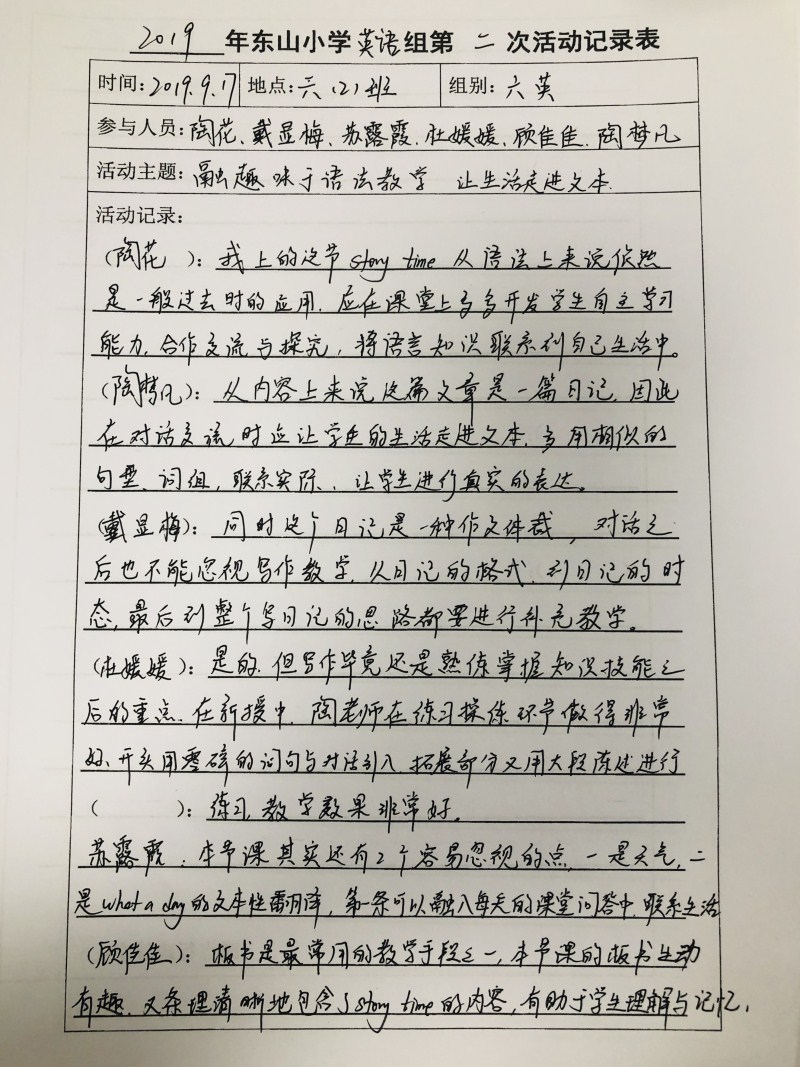 2019 年东山小学英语组第 二 次活动记录表
时间: 2019.9.17 地点: 六（2）班 组别: 六英
参与人员: 陶花、戴显梅、苏露霞、杜媛媛、顾佳佳、陶梦凡
活动主题: 融趣味于语法教学 让生活走进文本.
活动记录:
（陶花）: 我上的这节story time 从语法上来说依然
是一般过去时的应用. 应在课堂上多多开发学生自主学习
能力. 合作交流与探究, 将语言知识联系到自己生活中。
（陶梦凡）: 从内容上来说这篇文章是一篇日记. 因此
在对话交流时应让学生的生活走进文本. 多用相似的
句型、词组, 联系实际、让学生进行真实的表达。
（戴显梅）: 同时这个日记是一种作文体裁, 对话之
后也不能忽视写作教学. 从日记的格式. 到日记的时
态, 最后到整个写日记的思路都要进行补充教学。
（杜媛媛）: 是的. 但写作毕竟还是熟练掌握知识技能之
后的重点. 在新授中. 陶老师在练习操练环节做得非常
好. 开头用零碎的词句与对话引入. 拓展部分又用大段陈述进行
（ ）: 练习. 教学效果非常好。
苏露霞: 本节课其实还有2个容易忽视的点, 一是天气, 二
是what a day的文本性翻译, 第一条可以融入每天的课堂问答中. 联系生活
（顾佳佳）: 板书是最常用的教学手段之一, 本节课的板书生动
有趣. 又条理清晰地包含了story time的内容, 有助于学生理解与记忆.